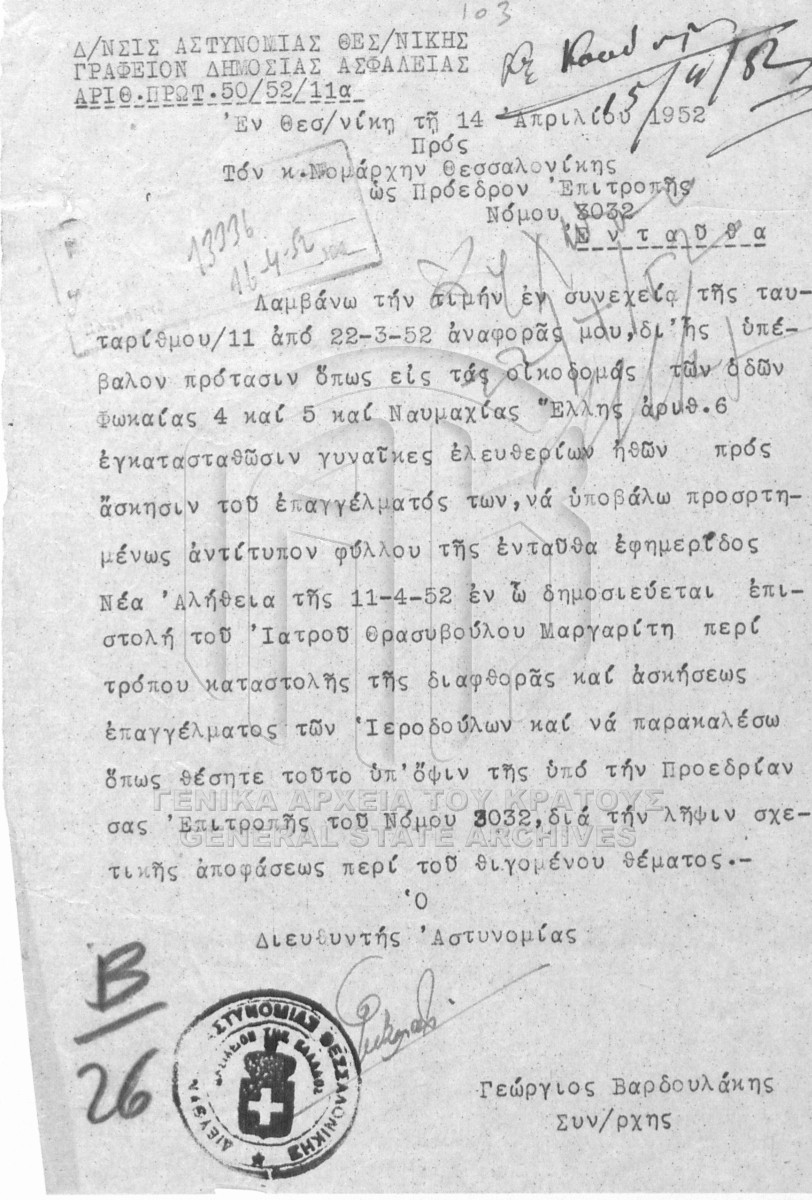 103
Δ/ΝΣΙΣ ΑΣΤΥΝΟΜΙΑΣ ΘΕΣ/ΝΙΚΗΣ
ΓΡΑΦΕΙΟΝ ΔΗΜΟΣΙΑΣ ΑΣΦΑΛΕΙΑΣ
ΑΡΙΘ.ΠΡΩΤ.50/52/11α
15/4/52
Ἐν Θεσ/νίκῃ τῇ 14 Ἀπριλίου 1952
Πρός
Τόν κ.Νομάρχην Θεσσαλονίκης
ὡς Πρόεδρον Ἐπιτροπῆς
Νόμου 3032
Ἐνταῦθα
13336
16-4-52
Λαμβάνω τήν τιμήν ἐν συνεχείᾳ τῆς ταυ-
ταρίθμου/11 ἀπό 22-3-52 ἀναφορᾶς μου,δι'ἧς ὑπέ-
βαλον πρότασιν ὅπως εἰς τάς οἰκοδομάς τῶν ὁδῶν
Φωκαίας 4 καί 5 καί Ναυμαχίας Ἕλλης ἀριθ.6
ἐγκατασταθῶσιν γυναῖκες ἐλευθερίων ἠθῶν πρός
ἄσκησιν τοῦ ἐπαγγέλματός των,νά ὑποβάλω προσρτη-
μένως ἀντίτυπον φύλλου τῆς ἐνταῦθα ἐφημερίδος
Νέα Ἀλήθεια τῆς 11-4-52 ἐν ᾧ δημοσιεύεται ἐπι-
στολή τοῦ Ἰατροῦ Θρασυβούλου Μαργαρίτη περί
τρόπου καταστολῆς τῆς διαφθορᾶς καί ἀσκήσεως
ἐπαγγέλματος τῶν Ἱεροδούλων καί νά παρακαλέσω
ὅπως θέσητε τοῦτο ὑπ'ὄψιν τῆς ὑπό τήν Προεδρίαν
ΓΕΝΙΚΑ ΑΡΧΕΙΑ ΤΟΥ ΚΡΑΤΟΥΣ
σας Ἐπιτροπῆς τοῦ Νόμου 3032,διά τήν λῆψιν σχε-
GENERAL STATE ARCHIVES
τικῆς ἀποφάσεως περί τοῦ θιγομένου θέματος.-
Ὁ
Διευθυντής Ἀστυνομίας
Β/26
ΑΣΤΥΝΟΜΙΑΣ ΘΕΣΣΑΛΟΝΙΚΗΣ
ΒΑΣΙΛΕΙΟΝ ΤΗΣ ΕΛΛΑΔΟΣ
Γεώργιος Βαρδουλάκης
Συν/ρχης